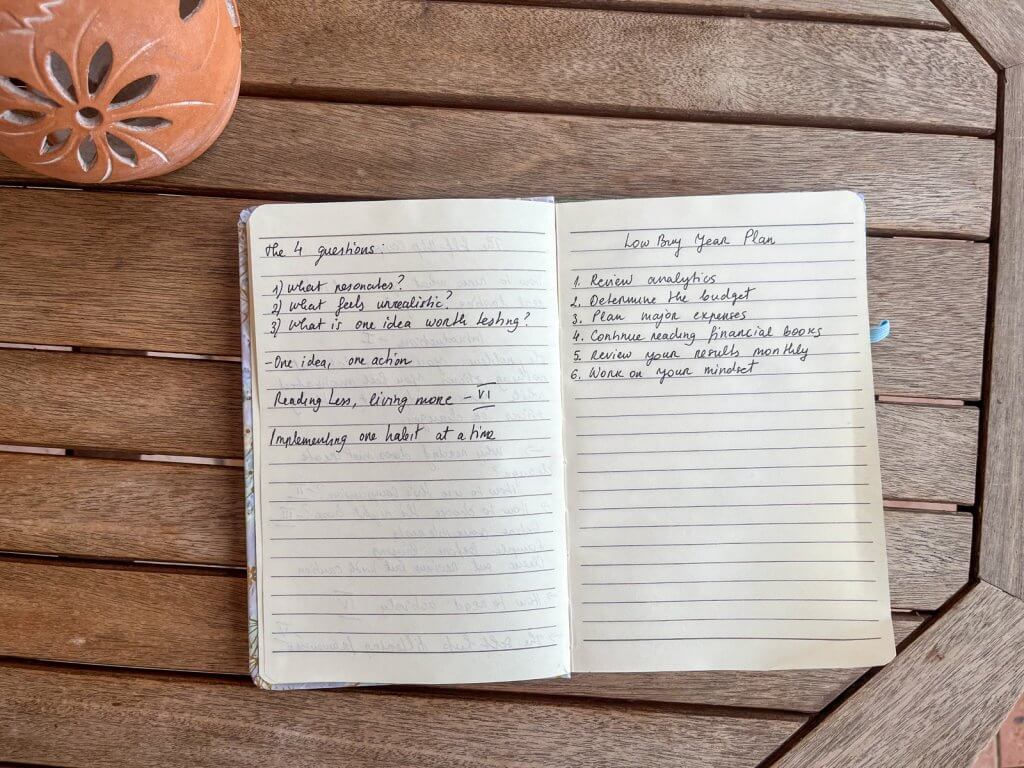 The 4 questions:
1) What resonates?
2) What feels unrealistic?
3) What is one idea worth testing?
- One idea, one action
Reading less, living more - VI
Implementing one habit at a time
Low Buy Year Plan
1. Review analytics
2. Determine the budget
3. Plan major expenses
4. Continue reading financial books
5. Review your results monthly
6. Work on your mindset